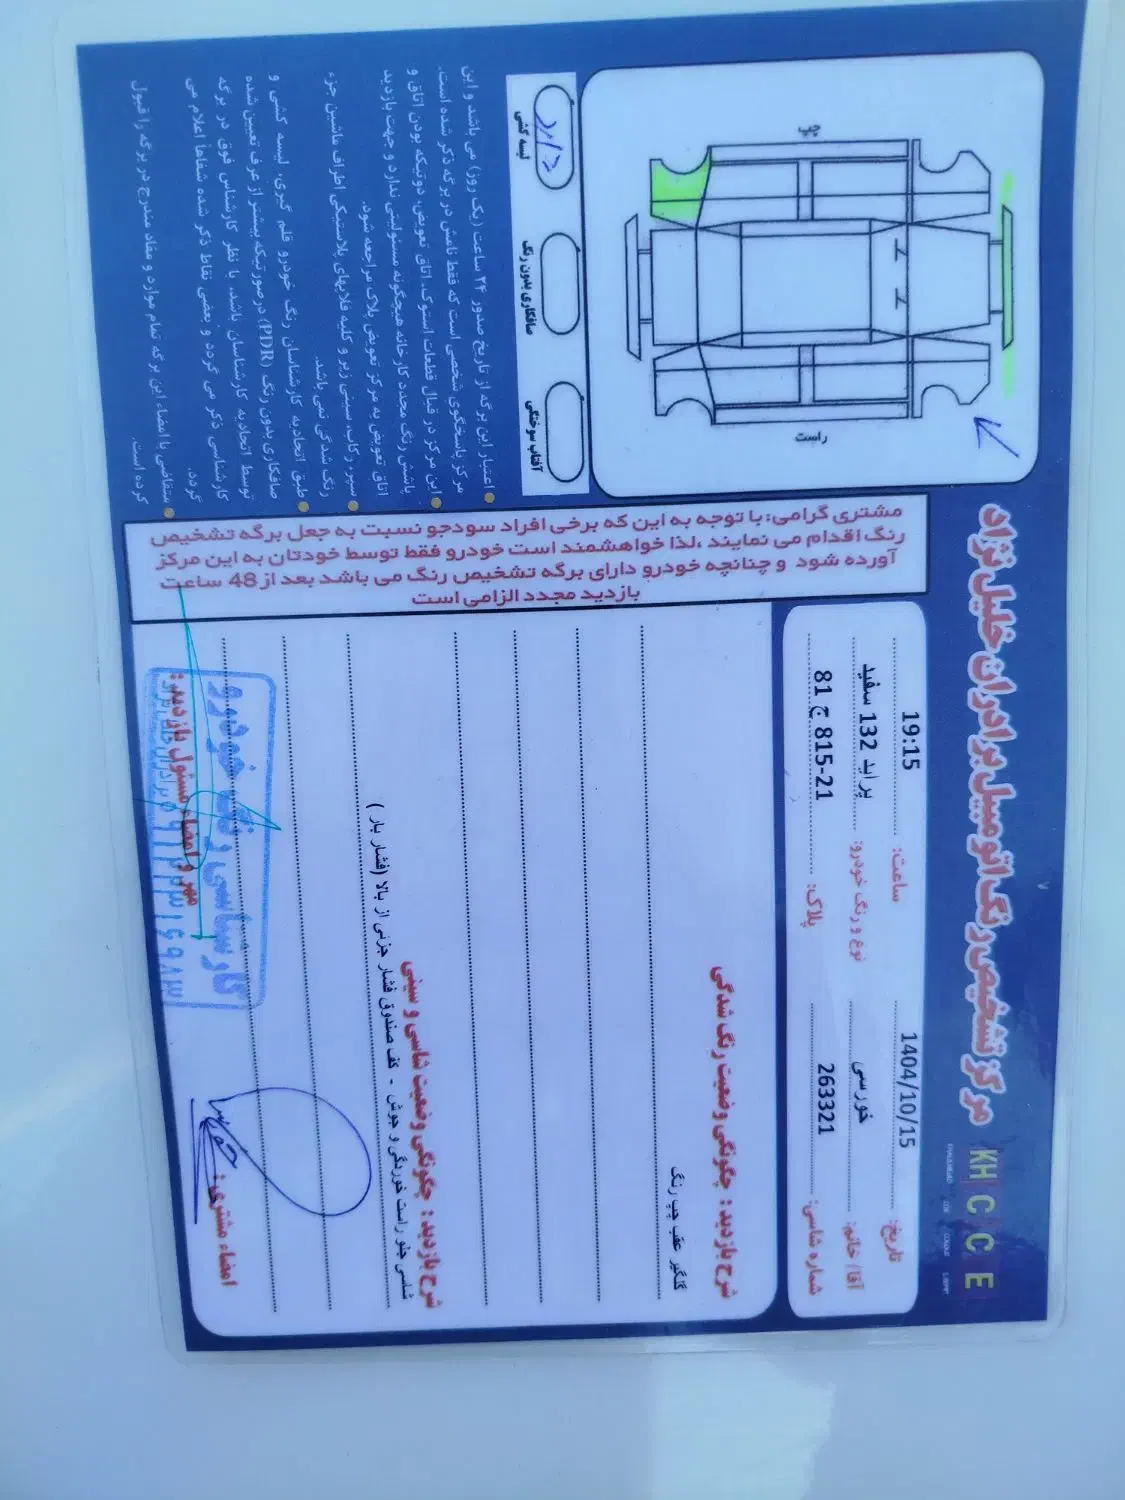 مرکز تشخیص رنگ اتومبیل برادران خلیل نژاد
KH C C E
تاریخ: 1404/10/15
ساعت: 19:15
آقا/ خانم: خورسی
نوع و رنگ خودرو: پراید 132 سفید
شماره شاسی: 263321
پلاک: 21-815 ج 81
شرح بازدید: چگونگی وضعیت رنگ شدگی
گلگیر عقب چپ رنگ
شرح بازدید: چگونگی وضعیت شاسی و سینی
شاسی جلو راست خوردگی و جوش - کف صندوق فشار جزئی از بالا (فشار بار)
امضاء مشتری:
مهر و امضاء مسئول بازدید:
کارشناسی رنگ خودرو
چپ
راست
لیسه کشی
دارد
صافکاری بدون رنگ
آفتاب سوختگی
مشتری گرامی: با توجه به این که برخی افراد سودجو نسبت به جعل برگه تشخیص
رنگ اقدام می نمایند ،لذا خواهشمند است خودرو فقط توسط خودتان به این مرکز
آورده شود و چنانچه خودرو دارای برگه تشخیص رنگ می باشد بعد از 48 ساعت
بازدید مجدد الزامی است
اعتبار این برگه از تاریخ صدور ۲۴ ساعت (یک روز) می باشد و این
مرکز پاسخگوی شخصی است که فقط نامش در برگه ذکر شده است.
این مرکز در قبال قطعات استوک، اتاق تعویض، دوتیکه بودن اتاق و
پاشش رنگ مجدد کارخانه هیچگونه مسئولیتی ندارد و جهت بازدید
اتاق تعویض به مرکز تعویض پلاک مراجعه شود.
سپر، رکاب، سینی زیر و کلیه قلابهای پلاستیکی اطراف ماشین جزء
رنگ شدگی نمی باشد.
طبق اتحادیه کارشناسان رنگ خودرو قلم گیری، لیسه کشی و
صافکاری بدون رنگ (PDR) در صورتیکه بیشتر از عرف تعیین شده
توسط اتحادیه کارشناسان باشد، با نظر کارشناس فوق در برگه
کارشناسی ذکر می گردد و بعضی نقاط ذکر شده شفاهاً اعلام می
گردد.
متقاضی با امضاء این برگه تمام موارد و مفاد مندرج در برگه را قبول
کرده است.